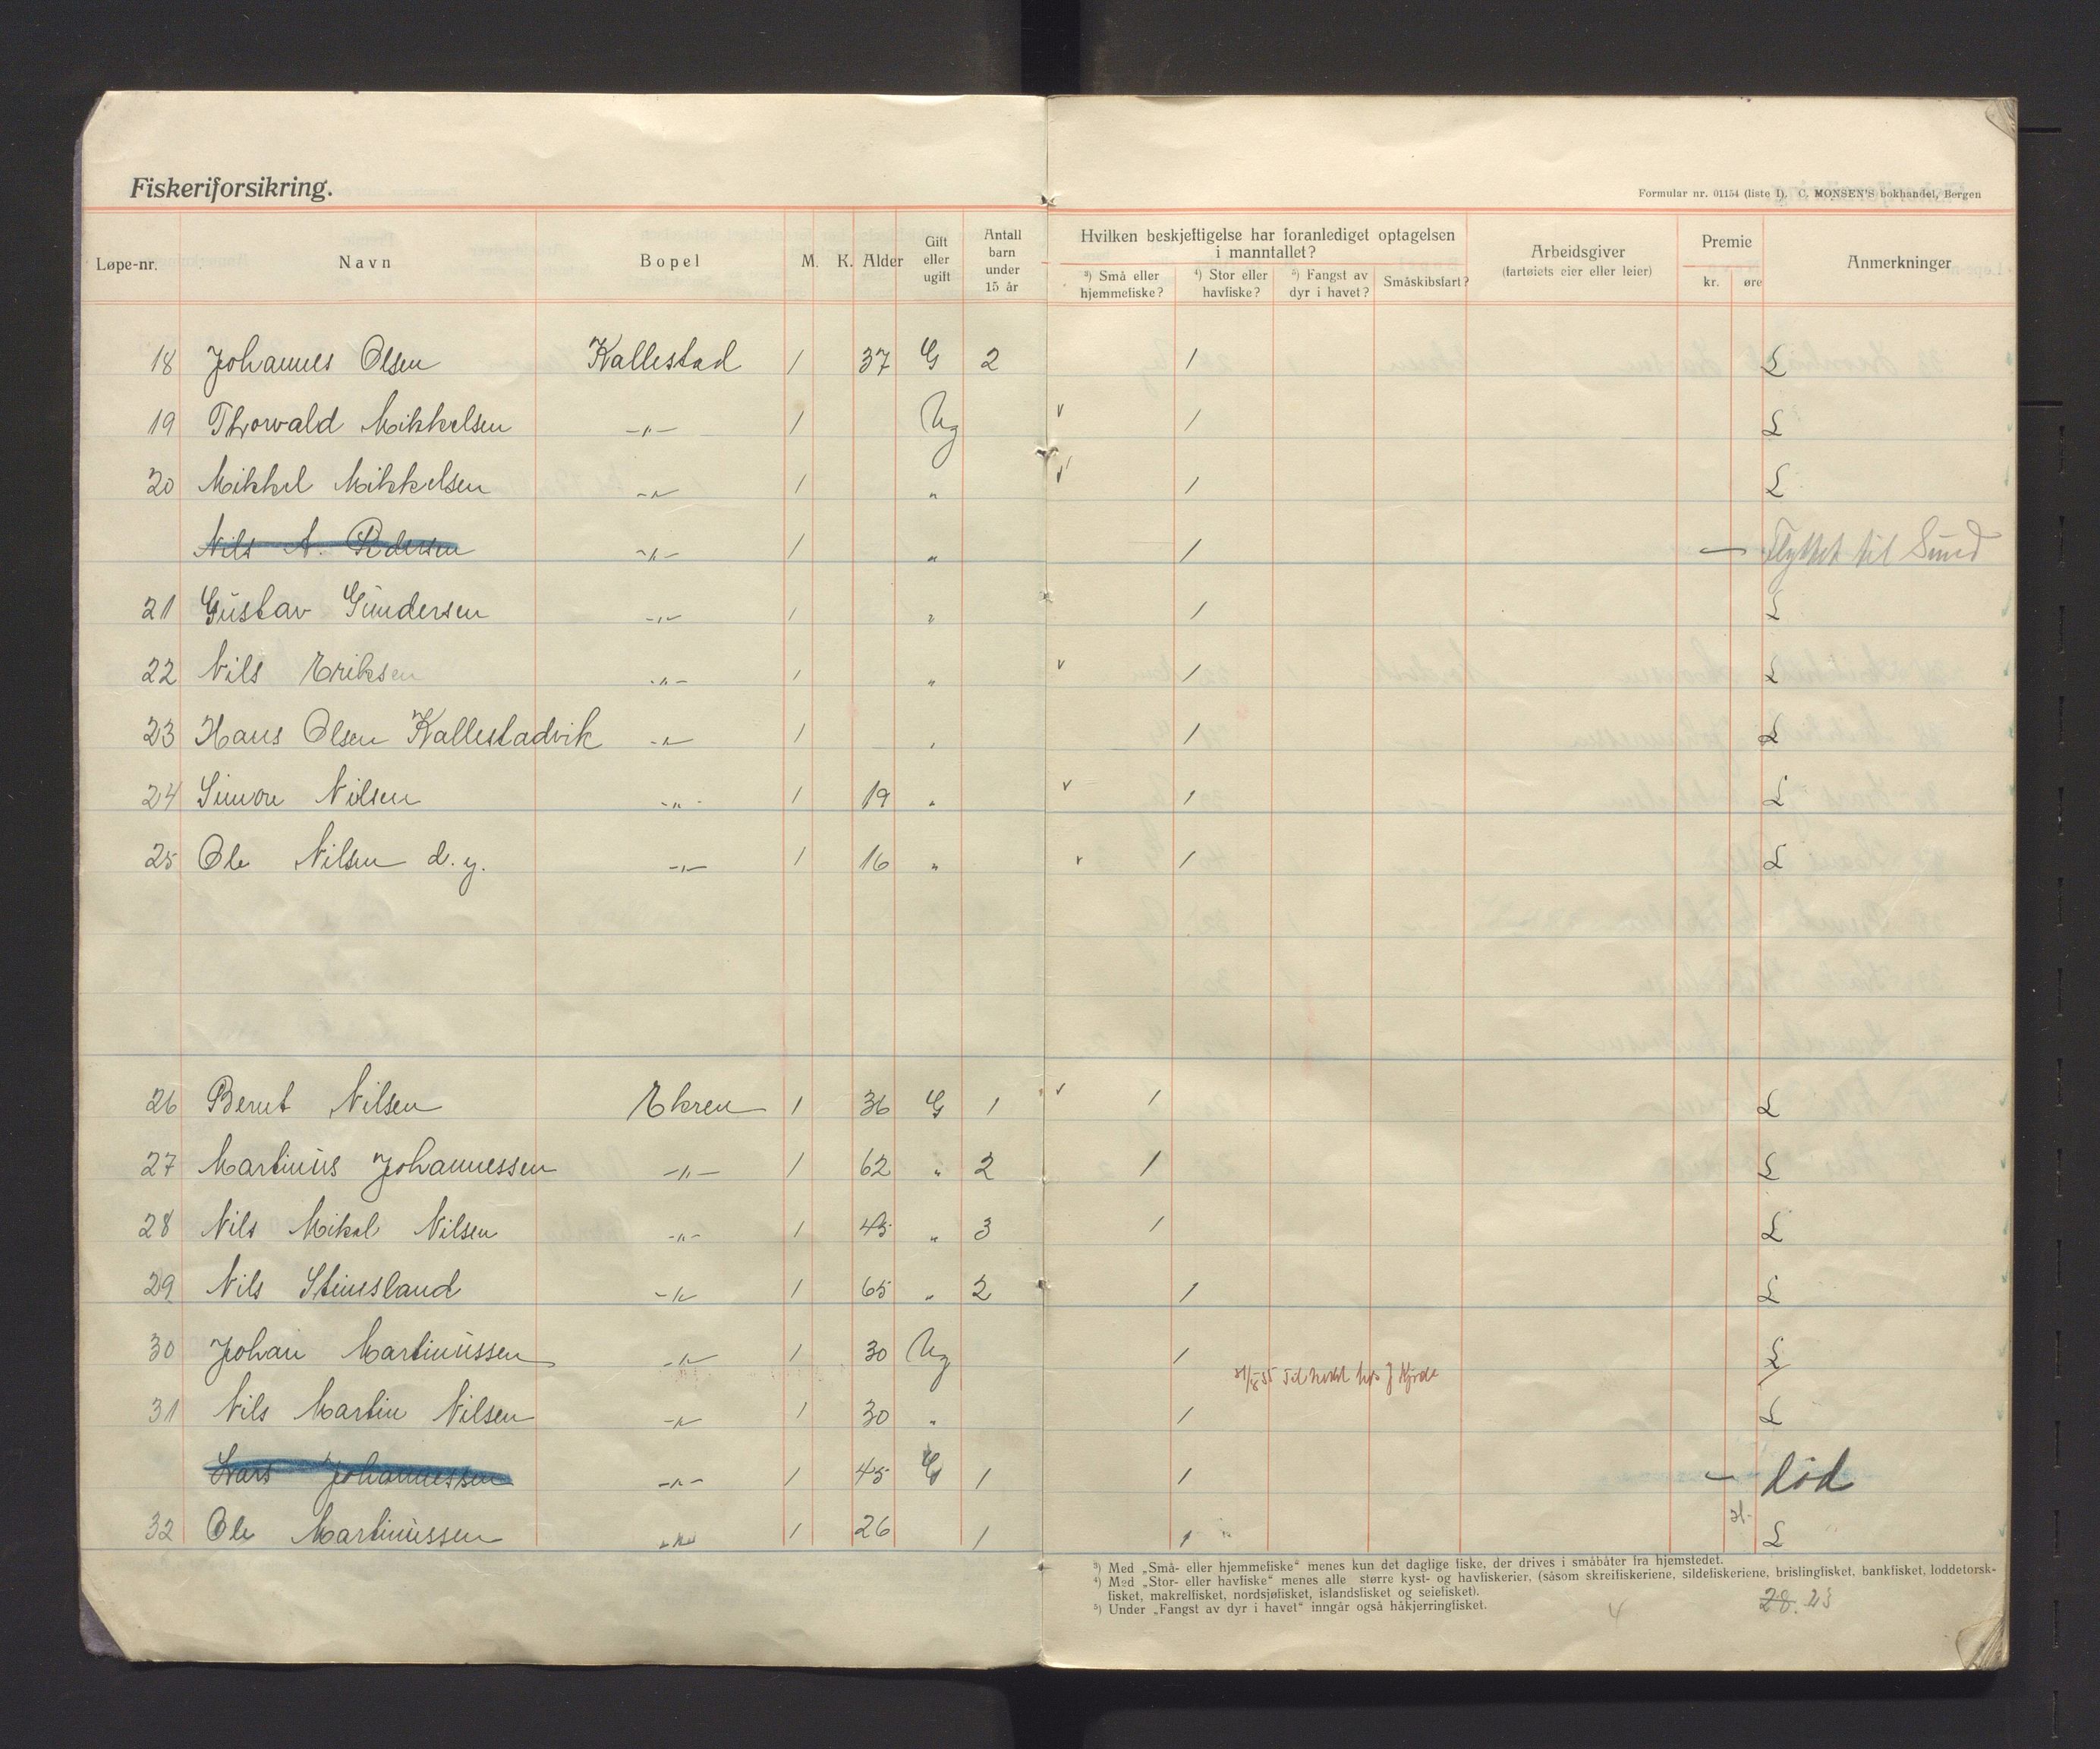 Fiskeriforsikring.
Formular nr. 01154 (liste I). C. MONSEN'S bokhandel, Bergen
Løpe-nr. Navn Bopel M. K. Alder Gift eller ugift Antall barn under 15 år Hvilken beskjeftigelse har foranlediget optagelsen i manntallet? ³) Små eller hjemmefiske? ⁴) Stor eller havfiske? ⁵) Fangst av dyr i havet? Småskibsfart? Arbeidsgiver (fartøiets eier eller leier) Premie kr. øre Anmerkninger
18 Johannes Olsen Kallestad 1 37 G 2 1 L
19 Thorvald Mikkelsen -"- 1 Ug v 1 L
20 Mikkel Mikkelsen -"- 1 " v 1 L
Nils A. Pedersen -"- 1 " 1 — Flyttet til Sund
21 Gustav Gundersen -"- 1 " 1 L
22 Nils Eriksen -"- 1 " v 1 L
23 Hans Olsen Kallestadvik -"- 1 " 1 L
24 Simon Nilsen -"- 1 19 " v 1 L
25 Ole Nilsen d.y. -"- 1 16 " v 1 L
26 Bernt Nilsen Ekren 1 36 G 1 v 1 L
27 Martinus Johannessen -"- 1 62 " 2 1 L
28 Nils Mikal Nilsen -"- 1 45 " 3 1 L
29 Nils Steinsland -"- 1 65 " 2 1 L
30 Johan Martinussen -"- 1 30 Ug 1 L
31 Nils Martin Nilsen -"- 1 30 " 1 L
Lars Johannessen -"- 1 45 G 1 1 — död
32 Ole Martinussen -"- 1 26 1 1 L
³) Med „Små- eller hjemmefiske“ menes kun det daglige fiske, der drives i småbåter fra hjemstedet.
⁴) Med „Stor- eller havfiske“ menes alle større kyst- og havfiskerier, (såsom skreifiskeriene, sildefiskeriene, brislingfisket, bankfisket, loddetorsk-
fisket, makrelfisket, nordsjøfisket, islandsfisket og seiefisket).
⁵) Under „Fangst av dyr i havet“ inngår også håkjerringfisket.
4 28. 23